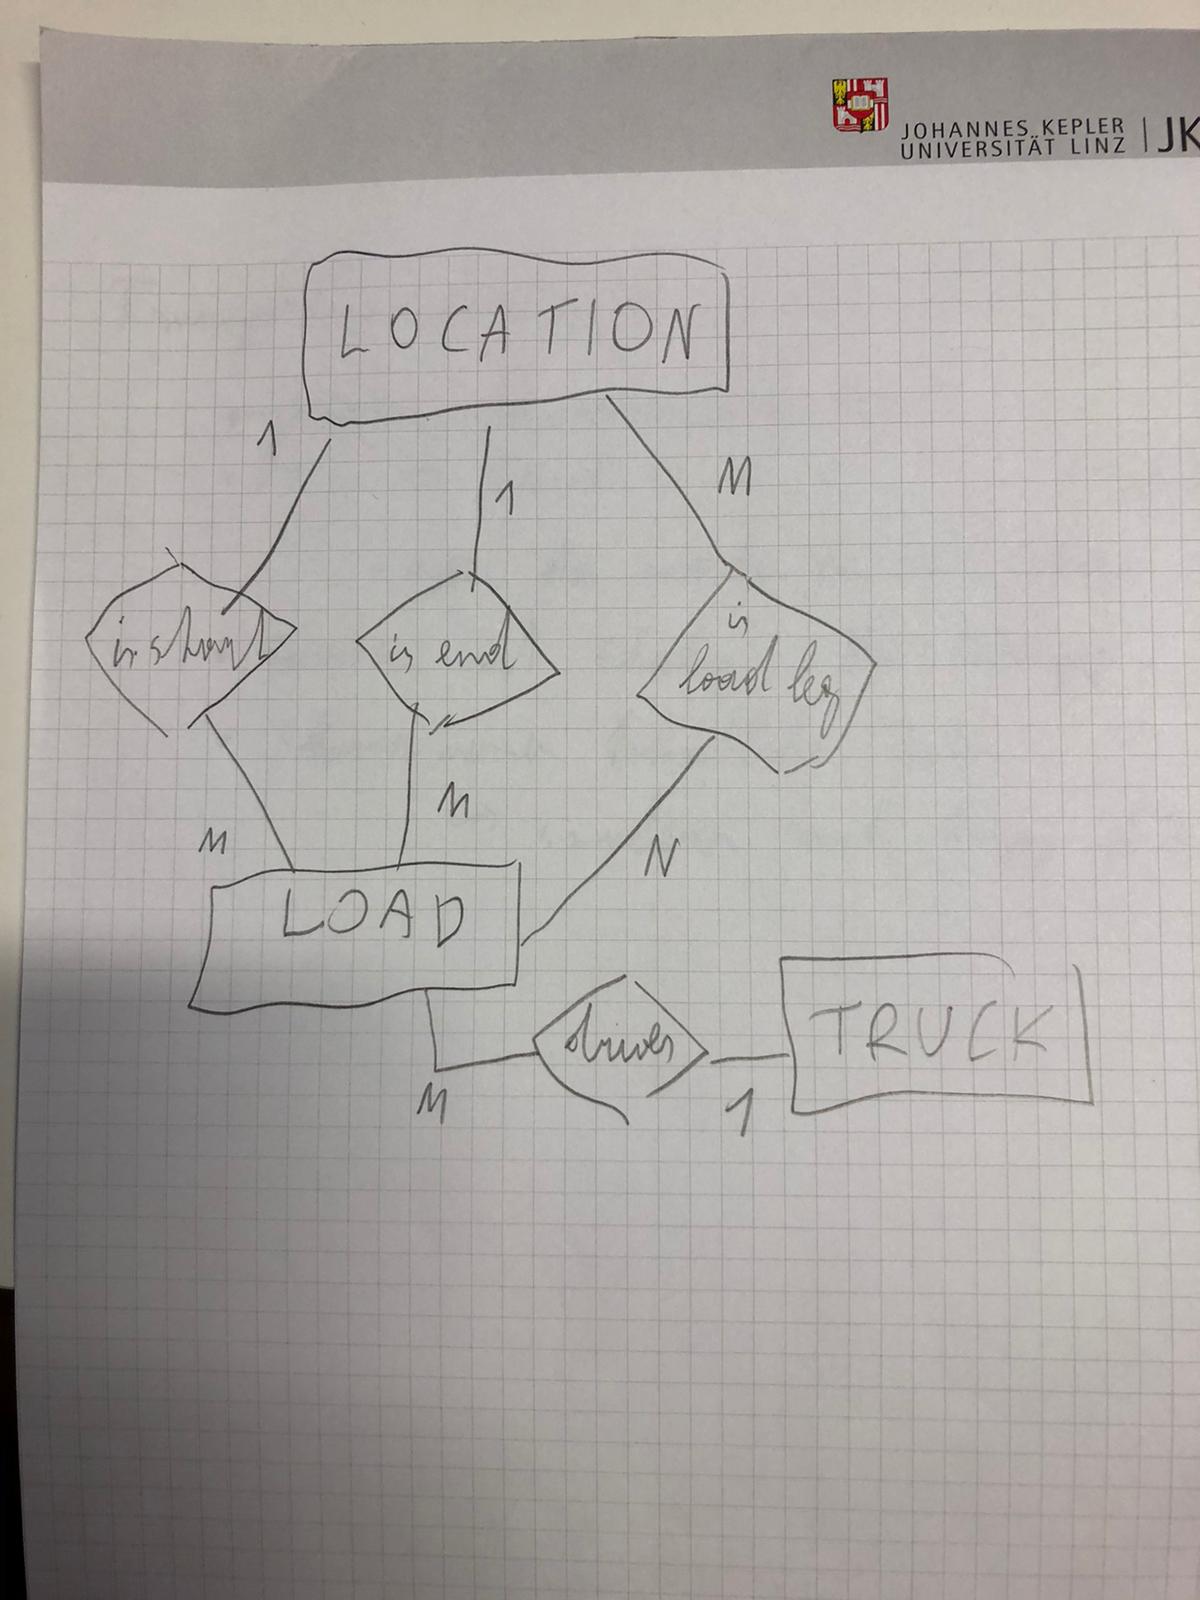 JOHANNES KEPLER
UNIVERSITÄT LINZ | JK
LOCATION
1
1
M
is start
is end
is
load leg
M
M
N
LOAD
drives
TRUCK
M
1